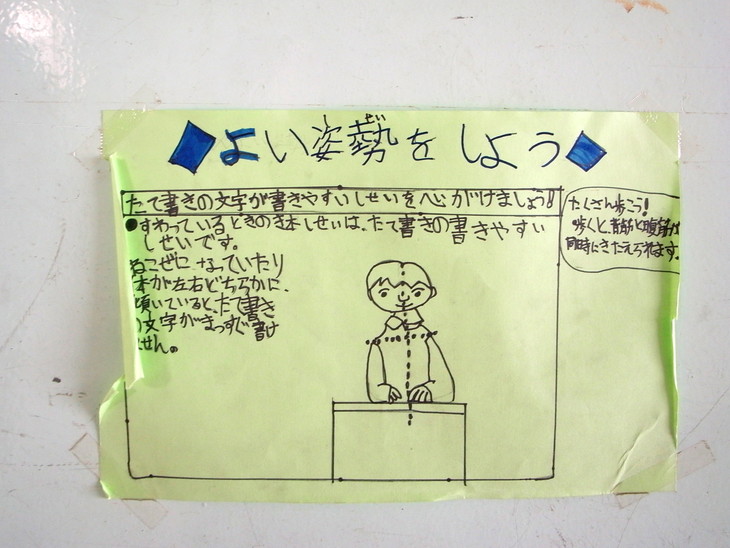 よい姿勢をしよう
たて書きの文字が書きやすいしせいを心がけましょう!
●すわっているときのき本しせいは、たて書きの書きやすい
しせいです。
ねこぜになっていたり
体が左右どちらかに、
傾いていると、たて書き
の文字がまっすぐ書け
ません。
たくさん歩こう!
歩くと、背筋と腹筋が
同時にきたえられます。